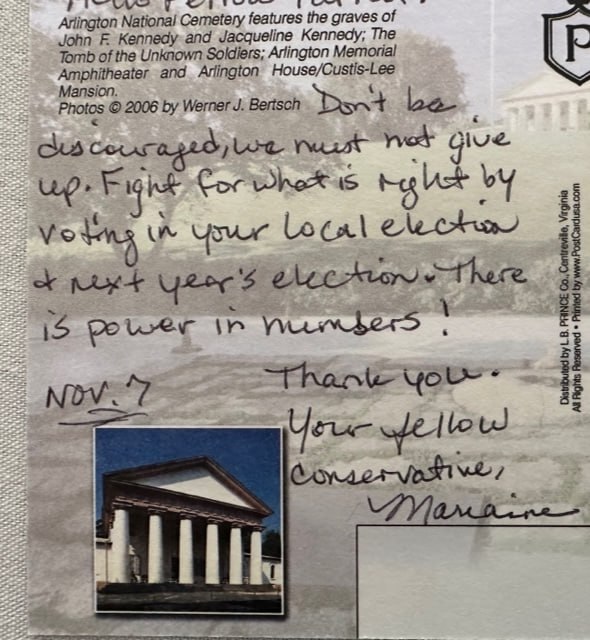 Hello Fellow Patriot,
Arlington National Cemetery features the graves of
John F. Kennedy and Jacqueline Kennedy; The
Tomb of the Unknown Soldiers; Arlington Memorial
Amphitheater and Arlington House/Custis-Lee
Mansion.
Photos © 2006 by Werner J. Bertsch
Don't be
discouraged, we must not give
up. Fight for what is right by
voting in your local election
& next year's election. There
is power in numbers!
Nov. 7
Thank you.
Your fellow
conservative,
P
Distributed by L.B. PRINCE Co., Centreville, Virginia
All Rights Reserved • Printed by www.PostCardusa.com